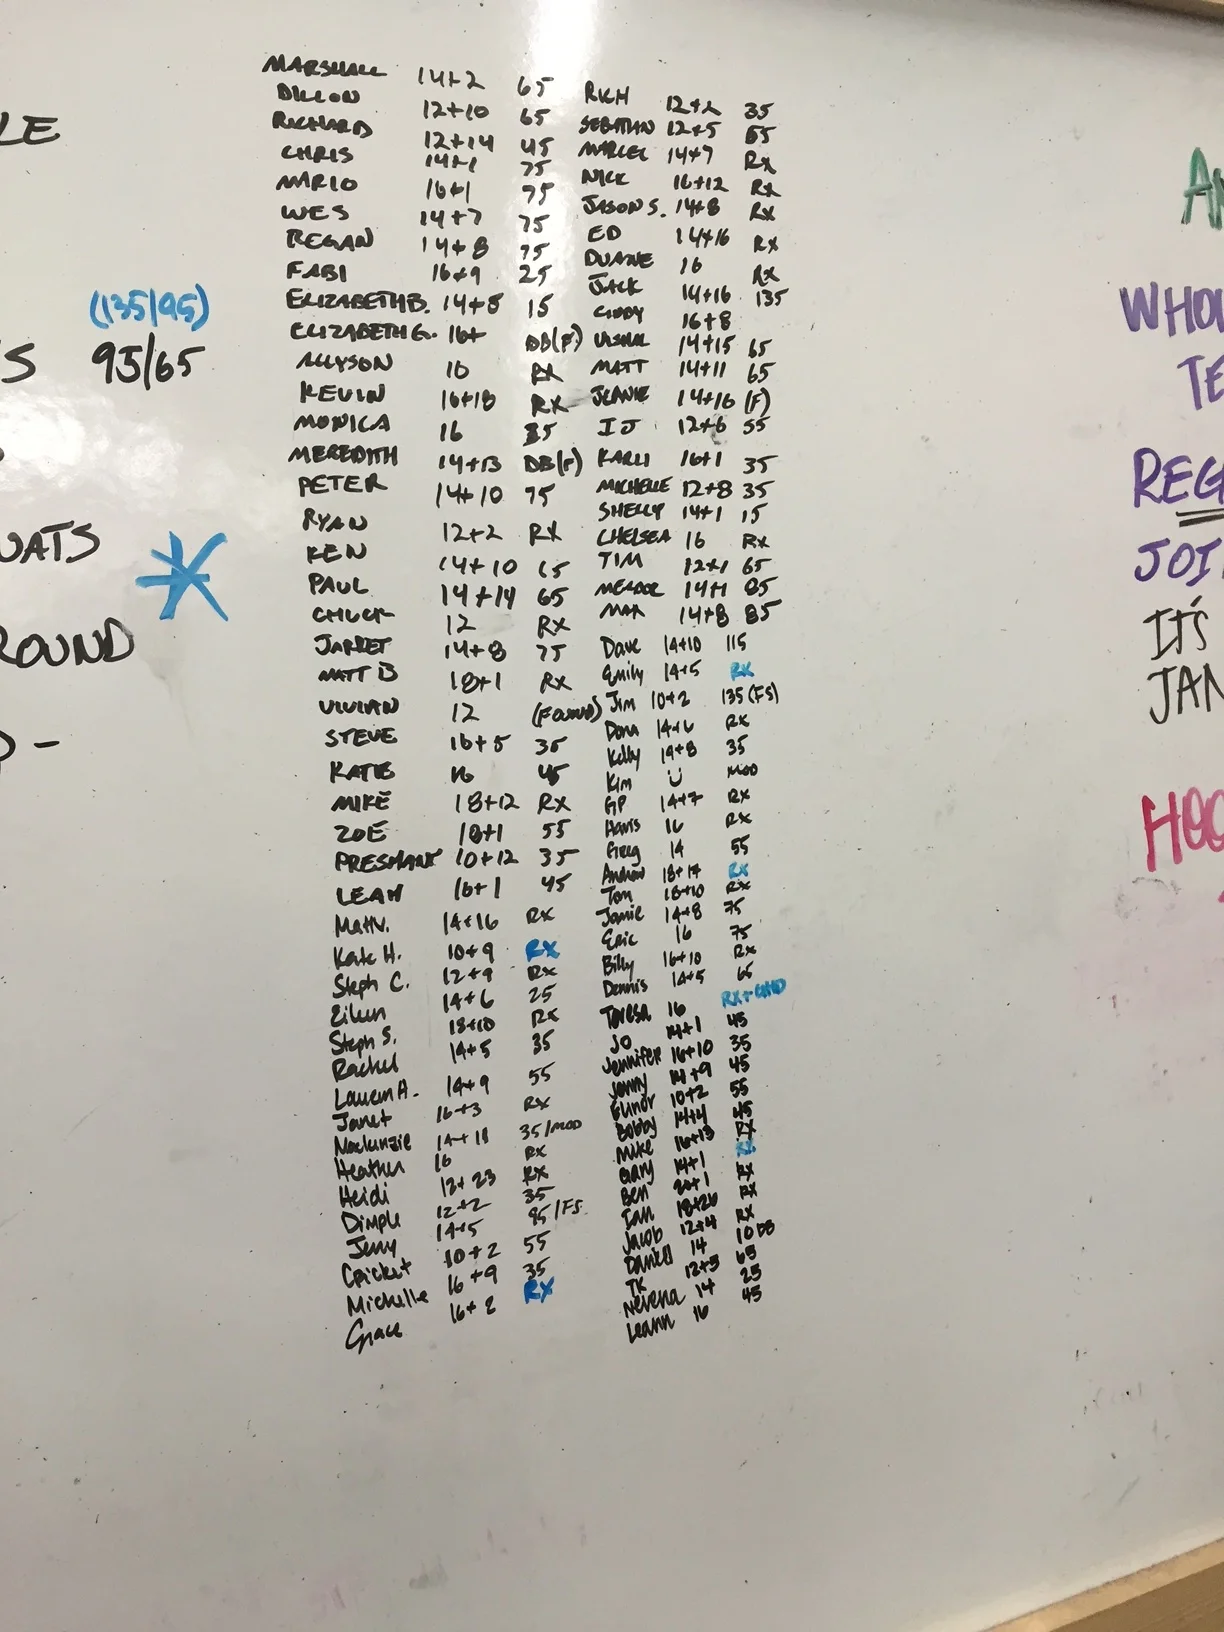 LE
(135/95)
S 95/65
UATS
ROUND
-
MARSHALL 14+2 65
DILLON 12+10 65
RICHARD 12+14 45
CHRIS 14+1 75
MARIO 16+1 75
WES 14+7 75
REGAN 14+8 75
FABI 16+9 25
ELIZABETH B. 14+8 15
ELIZABETH G. 16+ DB(F)
ALLYSON 16 RX
KEVIN 16+18 RX
MONICA 16 35
MEREDITH 14+13 DB(F)
PETER 14+10 75
RYAN 12+2 RX
KEN 14+10 65
PAUL 14+14 65
CHUCK 12 RX
JARRET 14+8 75
MATT B 18+1 RX
VIVIAN 12
STEVE 16+5 35
KATIE 16 45
MIKE 18+12 RX
ZOE 18+1 55
10+12 35
LEAH 16+1 45
Matt V. 14+16 RX
Kate H. 10+9 RX
Steph C. 12+9 RX
Eileen 14+6 25
Steph S. 18+10 RX
Rachel 14+5 35
Lauren H. 14+9 55
Janet 16+3 RX
Mackenzie 14+11 35/MOD
Heather 16 RX
Heidi 12+23 RX
Dimple 12+2 35
Jerry 14+5 95/FS
Cricket 10+2 55
Michelle 16+9 35
Grace 16+2 RX
RICH 12+2 35
SEBATIAN 12+5 55
MARCEL 14+7 RX
NICK 16+12 RX
JASON S. 14+8 RX
ED 14+16 RX
DUANE 16 RX
JACK 14+16 135
CINDY 16+8
VISHAL 14+15 65
MATT 14+11 65
JEANIE 14+16 (F)
IJ 12+6 55
KARLI 16+1 35
MICHELLE 12+8 35
SHELLY 14+1 15
CHELSEA 16 RX
TIM 12+1 65
14+1 85
MAX 14+8 85
Dave 14+10 115
Emily 14+5 RX
Jim 10+2 135(FS)
Dana 14+6 RX
Kelly 14+8 35
Kim MOD
GP 14+7 RX
16 RX
Greg 14 55
Andrew 18+14 RX
Tom 18+10 RX
Jamie 14+8 75
Eric 16 75
Billy 16+10 RX
Dennis 14+5 65
Teresa 16
JO 14+1 45
Jennifer 16+10 35
Jenny 14+9 45
Elinor 10+2 55
Bobby 14+4 45
Mike 16+13 RX
Gary 14+1 RX
Ben 20+1 RX
Ian 18+26 RX
Jacob 12+4 RX
Daniel 14 10 DB
TK 12+5 65
Nevena 14 25
Leann 16 45
WHO
TE
REG
JOI
IT'S
JAN